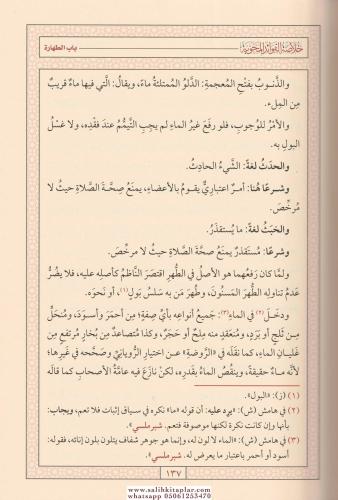 خلاصة الفوائد المحوية
باب الطهارة
والذَّنوبُ بفتْحِ المُعجمةِ: الدَّلوُ المُمتلئةُ ماءً، ويقالُ: الَّتي فيها ماءٌ قريبٌ
مِن المِلء.
والأمْرُ للوُجوبِ، فلو رفَعَ غيرُ الماءِ لم يجِبِ التَّيمُّمُ عندَ فقْدِه، ولا غسْلُ
البولِ به.
والحدَثُ لغةً: الشَّيءُ الحادِثُ.
وشرعًا هُنا: أمرٌ اعتباريٌّ يقومُ بالأعضاءِ، يمنَعُ صِحَّةَ الصَّلاةِ حيثُ لا
مُرخِّصَ.
والخبَثُ لغةً: ما يُستقذَرُ.
وشرعًا: مُستَقذَرٌ يمنَعُ صحَّةَ الصَّلاةِ حيثُ لا مرخِّصَ.
ولمَّا كان رَفعُهما هو الأصلُ في الطُّهرِ اقتصَرَ النَّاظمُ كأصلِه عليه، فلا يضُرُّ
عَدمُ تناولِه الطُّهرَ المَسنُونَ، وطُهرَ مَن به سَلسُ بَولٍ(١)، أو نَحوُه.
ودخَلَ(٢) في الماءِ(٣): جَميعُ أنواعِه بأيِّ صِفةٍ؛ مِن أحمرَ وأسودَ، ومُنحَلٍّ
مِن ثَلجٍ أو بَرَدٍ، ومُنعَقِدٍ منه مِلحٌ أو حَجَرٌ، وكذا مُتصاعدٌ مِن بُخارٍ مُرتفعٍ مِن
غَليانِ الماءِ، كما نقَلَه في «الرَّوضةِ» عـن اختيارِ الرُّويانيِّ وصَحَّحه في غيرِها؛
لأنَّه مـاءٌ حقيقةً، وينقُصُ الماءُ بقَدرِه، لكنْ نازَعَ فيه عامَّةُ الأصحابِ كما قالَه
(١) (ز): «البول».
(٢) في هامش (ش): «يرد عليه: أن قوله «ما» نكرة في سياق إثبات فلا تعم، ويجاب:
بأنها وإن كانت نكرة لكنها موصوفة فتعم. شبرملسي».
(٣) في هامش (ش): «الماء لا لون له، وإنما هو جوهر شفاف يتلون بلون إنائه، فقوله:
أسود أو أحمر باعتبار ما يعرض له. شبرملسي».
١٣٧
www.salihkitaplar.com
whatsapp 05061253470